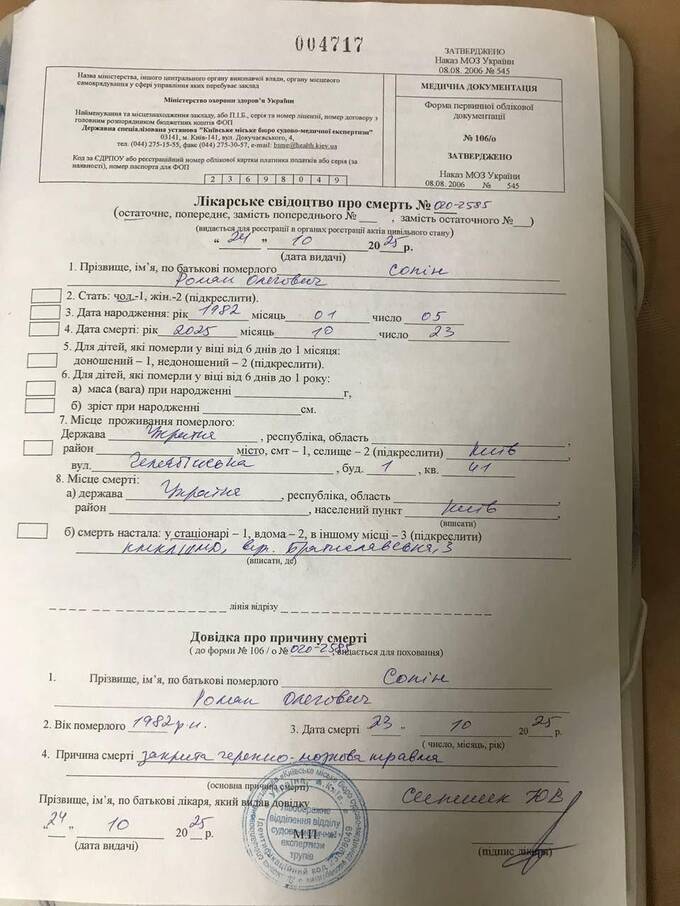 004717
ЗАТВЕРДЖЕНО
Наказ МОЗ України
08.08. 2006 № 545
Назва міністерства, іншого центрального органу виконавчої влади, органу місцевого
самоврядування у сфері управління яких перебуває заклад
Міністерство охорони здоров'я України
Найменування та місцезнаходження закладу, або П.І.Б., серія та номер ліцензії, номер договору з
головним розпорядником бюджетних коштів ФОП
Державна спеціалізована установа "Київське міське бюро судово-медичної експертизи"
03141, м. Київ-141, вул. Докучаєвська, 4,
тел. (044) 275-15-55, факс (044) 275-30-57, e-mail: bsme@health.kiev.ua
Код за ЄДРПОУ або реєстраційний номер облікової картки платника податків або серія (за
наявності), номер паспорта для ФОП
2 3 6 9 8 0 4 9
МЕДИЧНА ДОКУМЕНТАЦІЯ
Форма первинної облікової
документації
№ 106/о
ЗАТВЕРДЖЕНО
Наказ МОЗ України
08.08. 2006 № 545
Лікарське свідоцтво про смерть № 020-2585
(остаточне, попереднє, замість попереднього № , замість остаточного № )
(видається для реєстрації в органах реєстрації актів цивільного стану)
"24" 10 2025р.
(дата видачі)
1. Прізвище, ім'я, по батькові померлого Сопін
Роман Олегович
2. Стать: чол.-1, жін.-2 (підкреслити).
3. Дата народження: рік 1982 місяць 01 число 05
4. Дата смерті: рік 2025 місяць 10 число 23
5. Для дітей, які померли у віці від 6 днів до 1 місяця:
доношений – 1, недоношений – 2 (підкреслити).
6. Для дітей, які померли у віці від 6 днів до 1 року:
а) маса (вага) при народженні г,
б) зріст при народженні см.
7. Місце проживання померлого:
Держава Україна , республіка, область ,
район місто, смт – 1, селище – 2 (підкреслити) Київ
вул. , буд. 1 , кв. 41
8. Місце смерті:
а) держава Україна , республіка, область
район , населений пункт Київ
(вписати)
б) смерть настала: у стаціонарі – 1, вдома – 2, в іншому місці – 3 (підкреслити)
КМКЛШМД, вул. Братиславська, 3
(вписати, де)
лінія відрізу
Довідка про причину смерті
( до форми № 106 / о № 020-2585, видається для поховання)
1. Прізвище, ім'я, по батькові померлого Сопін
Роман Олегович
2. Вік померлого 1982 р.н. 3. Дата смерті 23 " 10 2025р.
( число, місяць, рік)
4. Причина смерті закрита черепно-мозкова травма
(основна причина смерті)
Прізвище, ім'я, по батькові лікаря, який видав довідку
"24" 10 2025 р.
(дата видачі)
М.П.
(підпис лікаря)